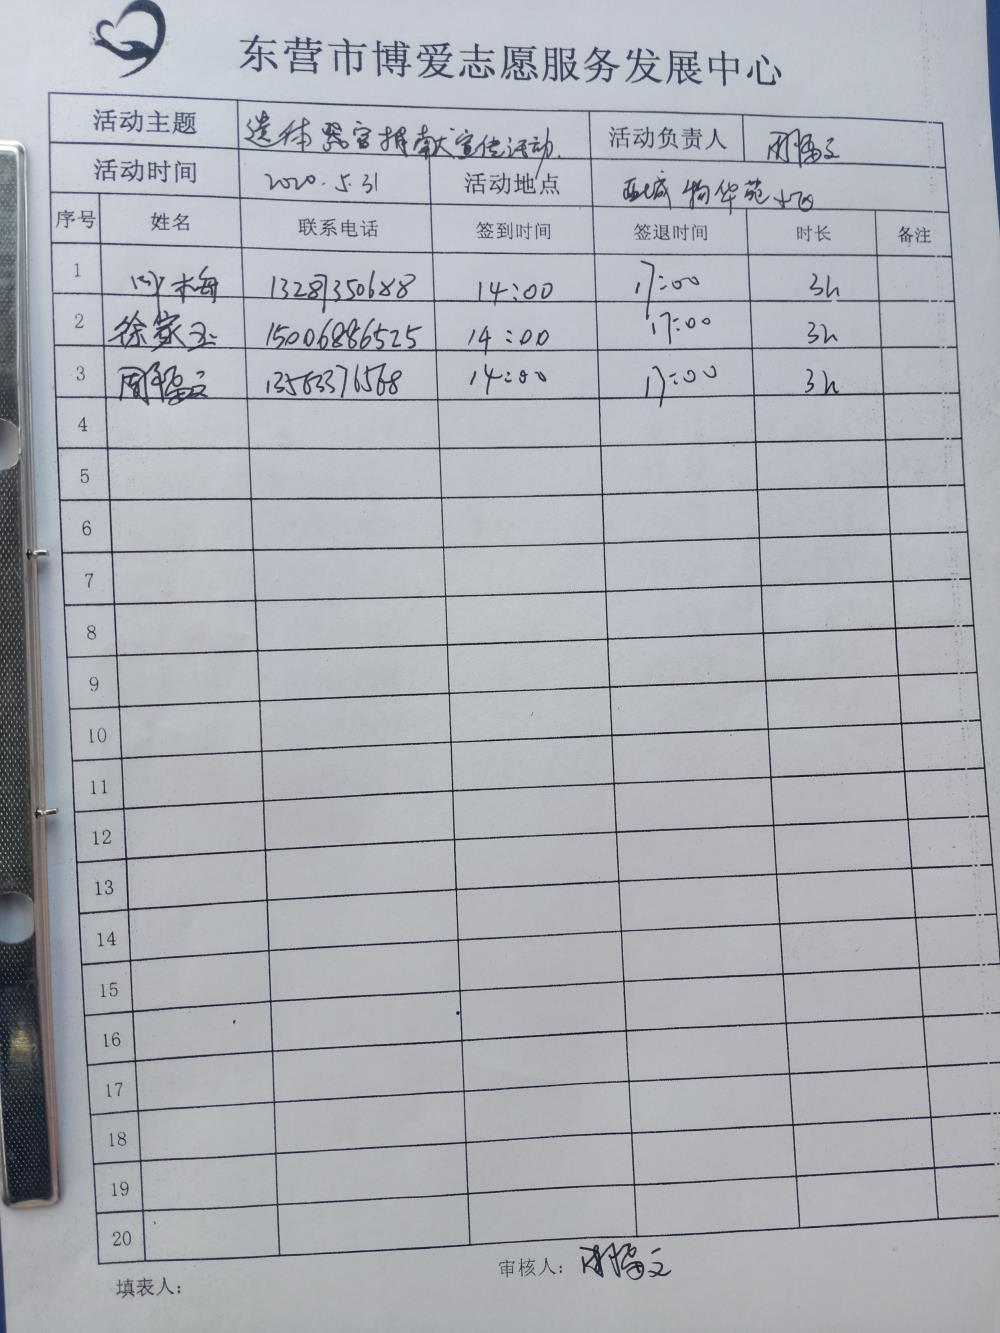 东营市博爱志愿服务发展中心
活动主题 遗体器官捐献宣传活动. 活动负责人 周福文
活动时间 2020.5.31 活动地点 西城物华苑小区
序号 姓名 联系电话 签到时间 签退时间 时长 备注
1 14:00 17:00 3h
2 徐家玉 15006886525 14:00 17:00 3h
3 周福文 13563376568 14:00 17:00 3h
4
5
6
7
8
9
10
11
12
13
14
15
16
17
18
19
20
审核人: 周福文
填表人: